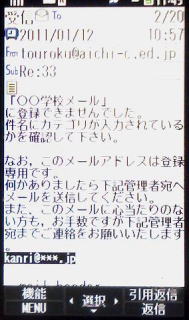 受信 To 2/20
2011/01/12 10:57
From touroku@aichi-c.ed.jp
Sub Re:33
「〇〇学校メール」
に登録できませんでした。
件名にカテゴリが入力されている
かを確認して下さい。
なお，このメールアドレスは登録
専用です。
何かありましたら下記管理者宛へ
メールを送信してください。
また，このメールに心当たりのな
い方も，お手数ですが下記管理者
宛までご連絡をお願いいたしま
す。
kanri@***.jp
機能 引用返信
MENU 選択 返信